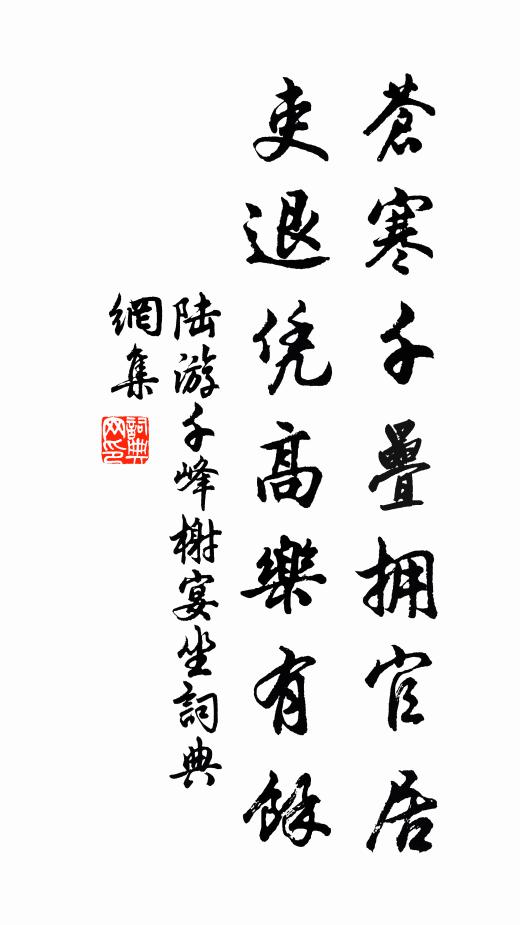 蒼寒千疊擁官居
吏退凭高樂有餘
陸游千峰榭宴坐詞典
網集
詞典
网印